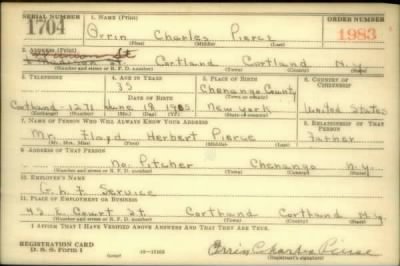 SERIAL NUMBER 1. NAME (Print) ORDER NUMBER
1704 Orrin Charles Pierce 1983
(First) (Middle) (Last)
2. ADDRESS (Print)
Madison St Cortland Cortland N.Y.
(Number and street or R. F. D. number) (Town) (County) (State)
3. TELEPHONE 4. AGE IN YEARS 5. PLACE OF BIRTH 6. COUNTRY OF CITIZENSHIP
35 Chenango County
DATE OF BIRTH
Cortland-1271 June 19 1905 New York United States
(Exchange) (Number) (Mo.) (Day) (Yr.) (State or country)
7. NAME OF PERSON WHO WILL ALWAYS KNOW YOUR ADDRESS 8. RELATIONSHIP OF THAT PERSON
Mr. Floyd Herbert Pierce Father
(Mr., Mrs., Miss) (First) (Middle) (Last)
9. ADDRESS OF THAT PERSON
No. Pitcher Chenango N.Y.
(Number and street or R. F. D. number) (Town) (County) (State)
10. EMPLOYER'S NAME
G.L.F. Service
11. PLACE OF EMPLOYMENT OR BUSINESS
42 E. Court St. Cortland Cortland N.Y.
(Number and street or R. F. D. number) (Town) (County) (State)
I AFFIRM THAT I HAVE VERIFIED ABOVE ANSWERS AND THAT THEY ARE TRUE.
REGISTRATION CARD
D. S. S. FORM 1
(over)
Orrin Charles Pierce